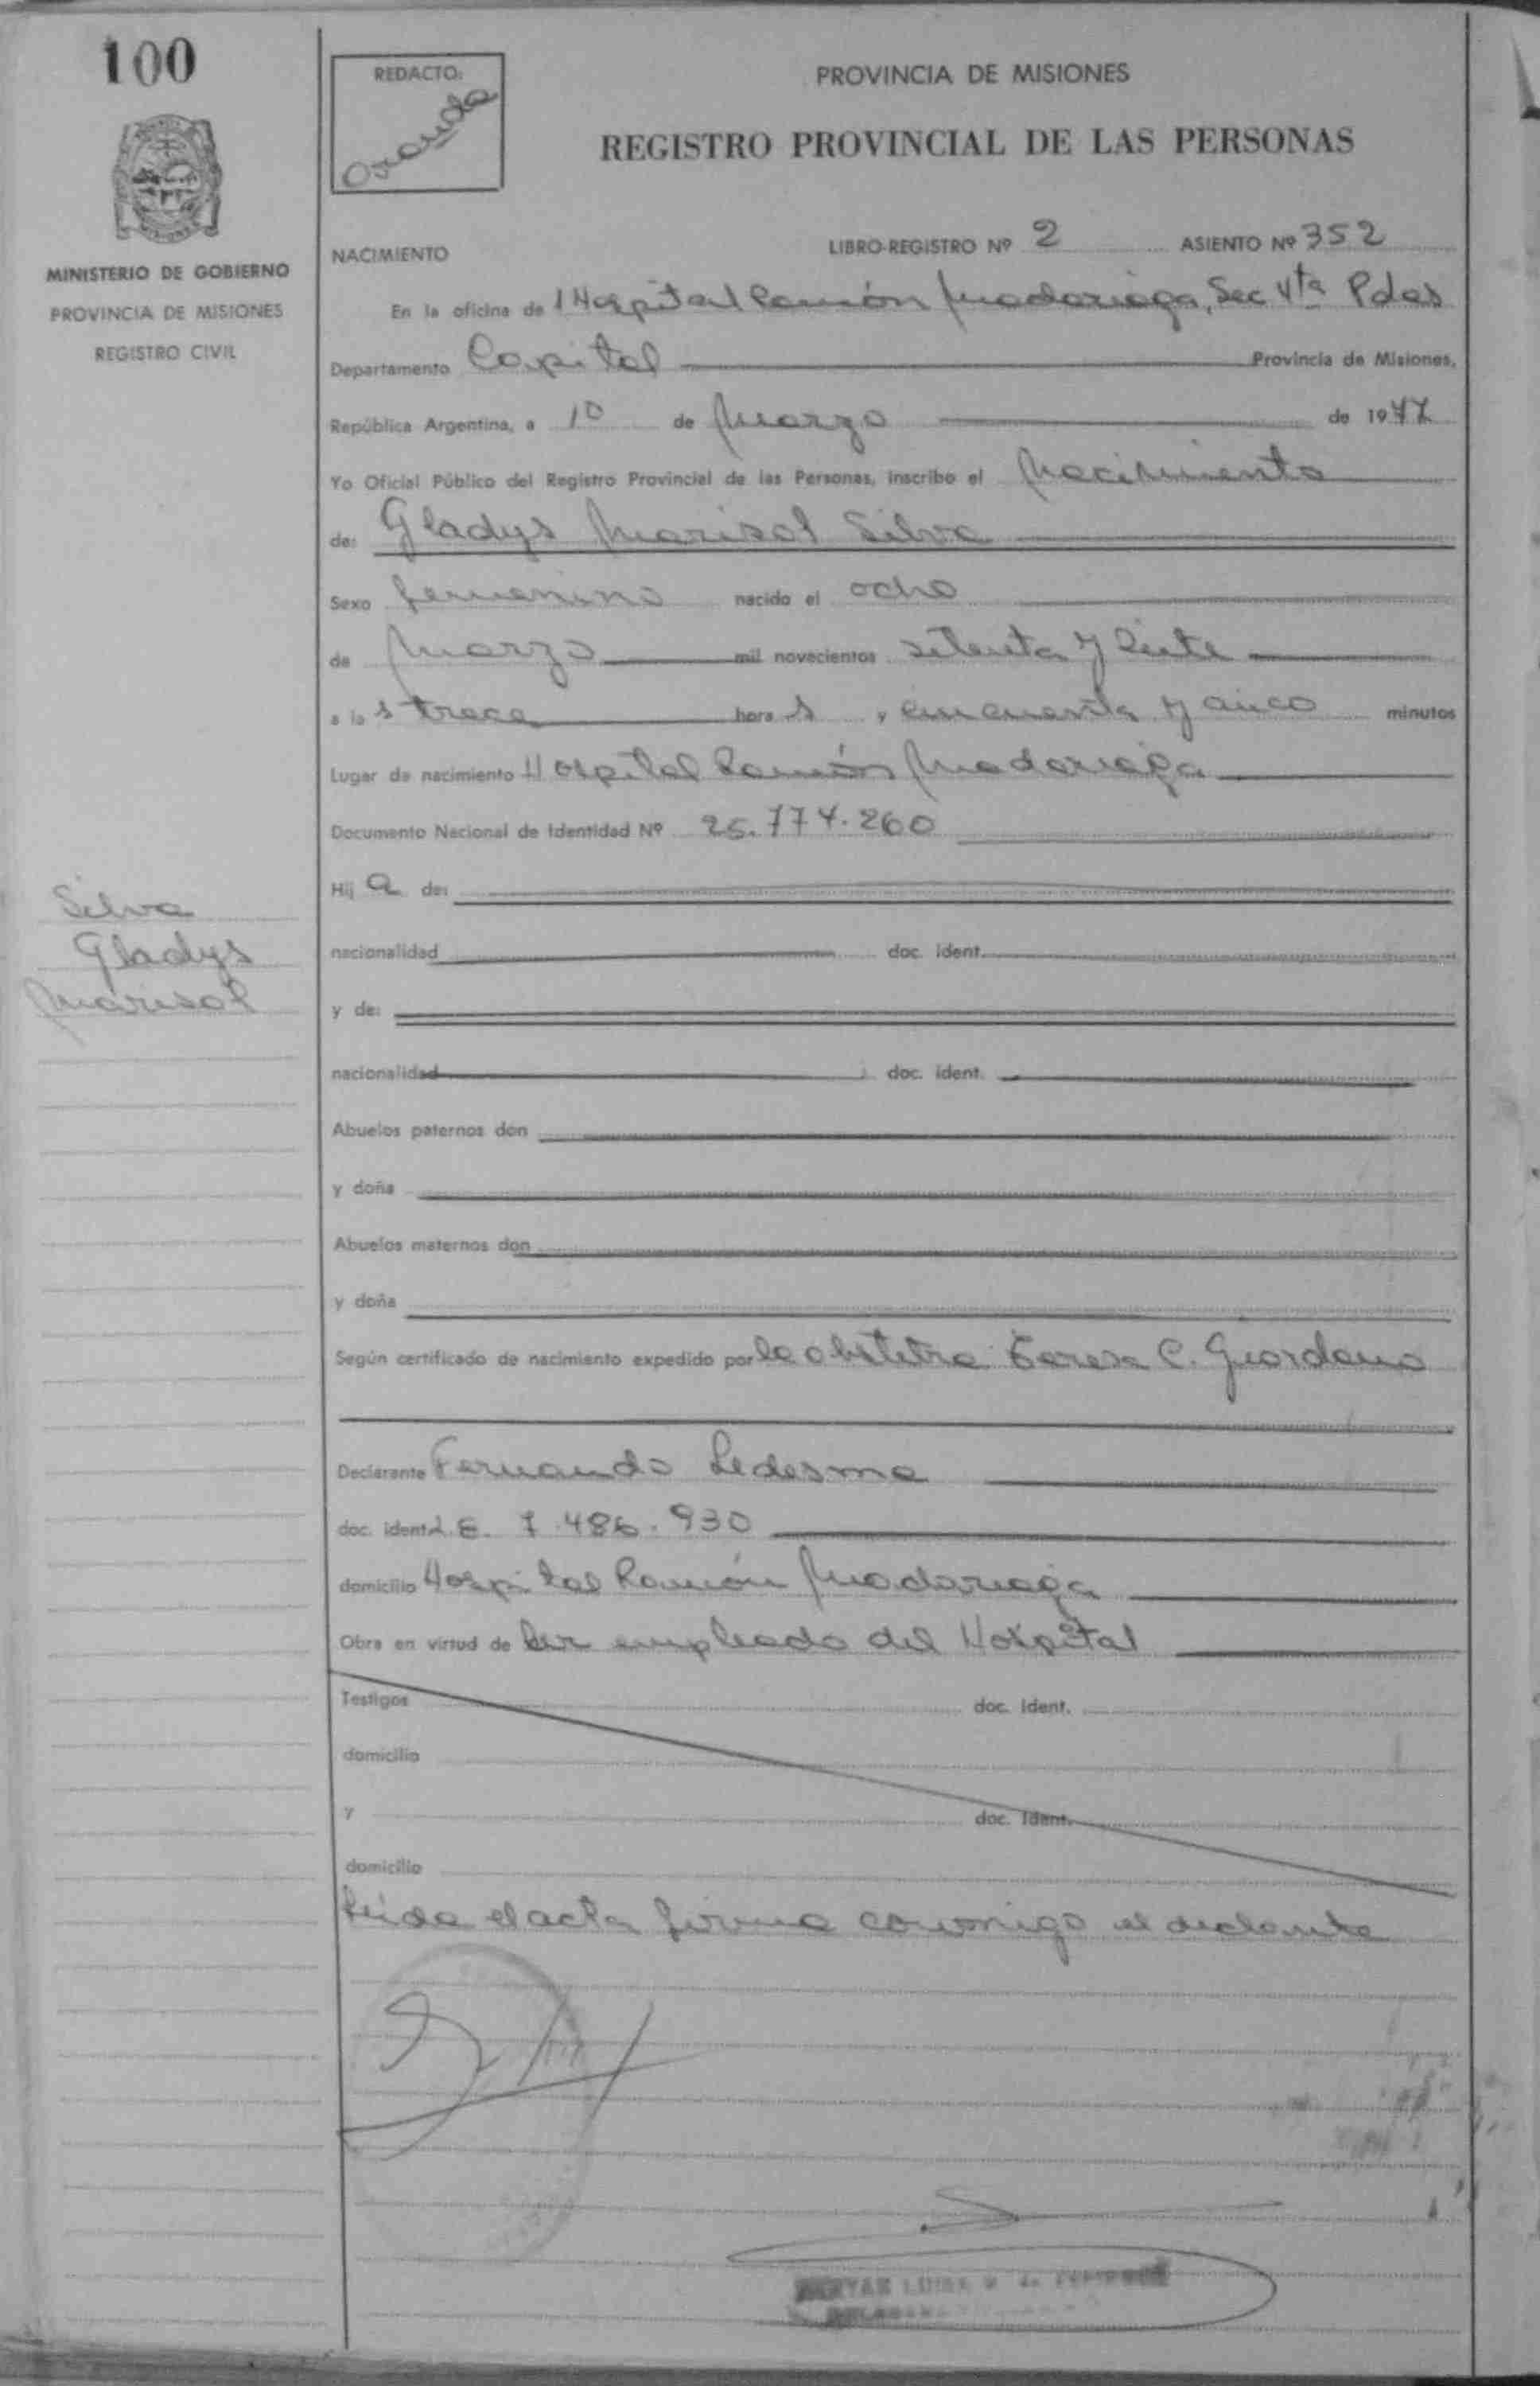 100
REDACTO:
PROVINCIA DE MISIONES
REGISTRO PROVINCIAL DE LAS PERSONAS
MINISTERIO DE GOBIERNO
PROVINCIA DE MISIONES
REGISTRO CIVIL
NACIMIENTO
LIBRO-REGISTRO Nº 2 ASIENTO Nº 352
En la oficina de l Hospital Ramón Madariaga, Sec 4ta Pdas
Departamento Capital Provincia de Misiones,
República Argentina, a 10 de Marzo de 1977
Yo Oficial Público del Registro Provincial de las Personas, inscribo el Nacimiento
de: Gladys Marisol Silva
Sexo femenino nacido el ocho
de Marzo mil novecientos setenta y siete
a la s trece hora s y cincuenta y cinco minutos
Lugar de nacimiento Hospital Ramón Madariaga
Documento Nacional de Identidad Nº 25.774.260
Hij a de:
Silva
Gladys
Marisol
nacionalidad doc. ident.
y de:
nacionalidad doc. ident.
Abuelos paternos don
y doña
Abuelos maternos don
y doña
Según certificado de nacimiento expedido por la obstetra Teresa C. Giordano
Declarante Fernando Ledesma
doc. ident. L.E. 7.486.930
domicilio Hospital Ramón Madariaga
Obra en virtud de ser empleado del Hospital
Testigos doc. ident.
domicilio
y doc. ident.
domicilio
Leída el acta firma conmigo el declante